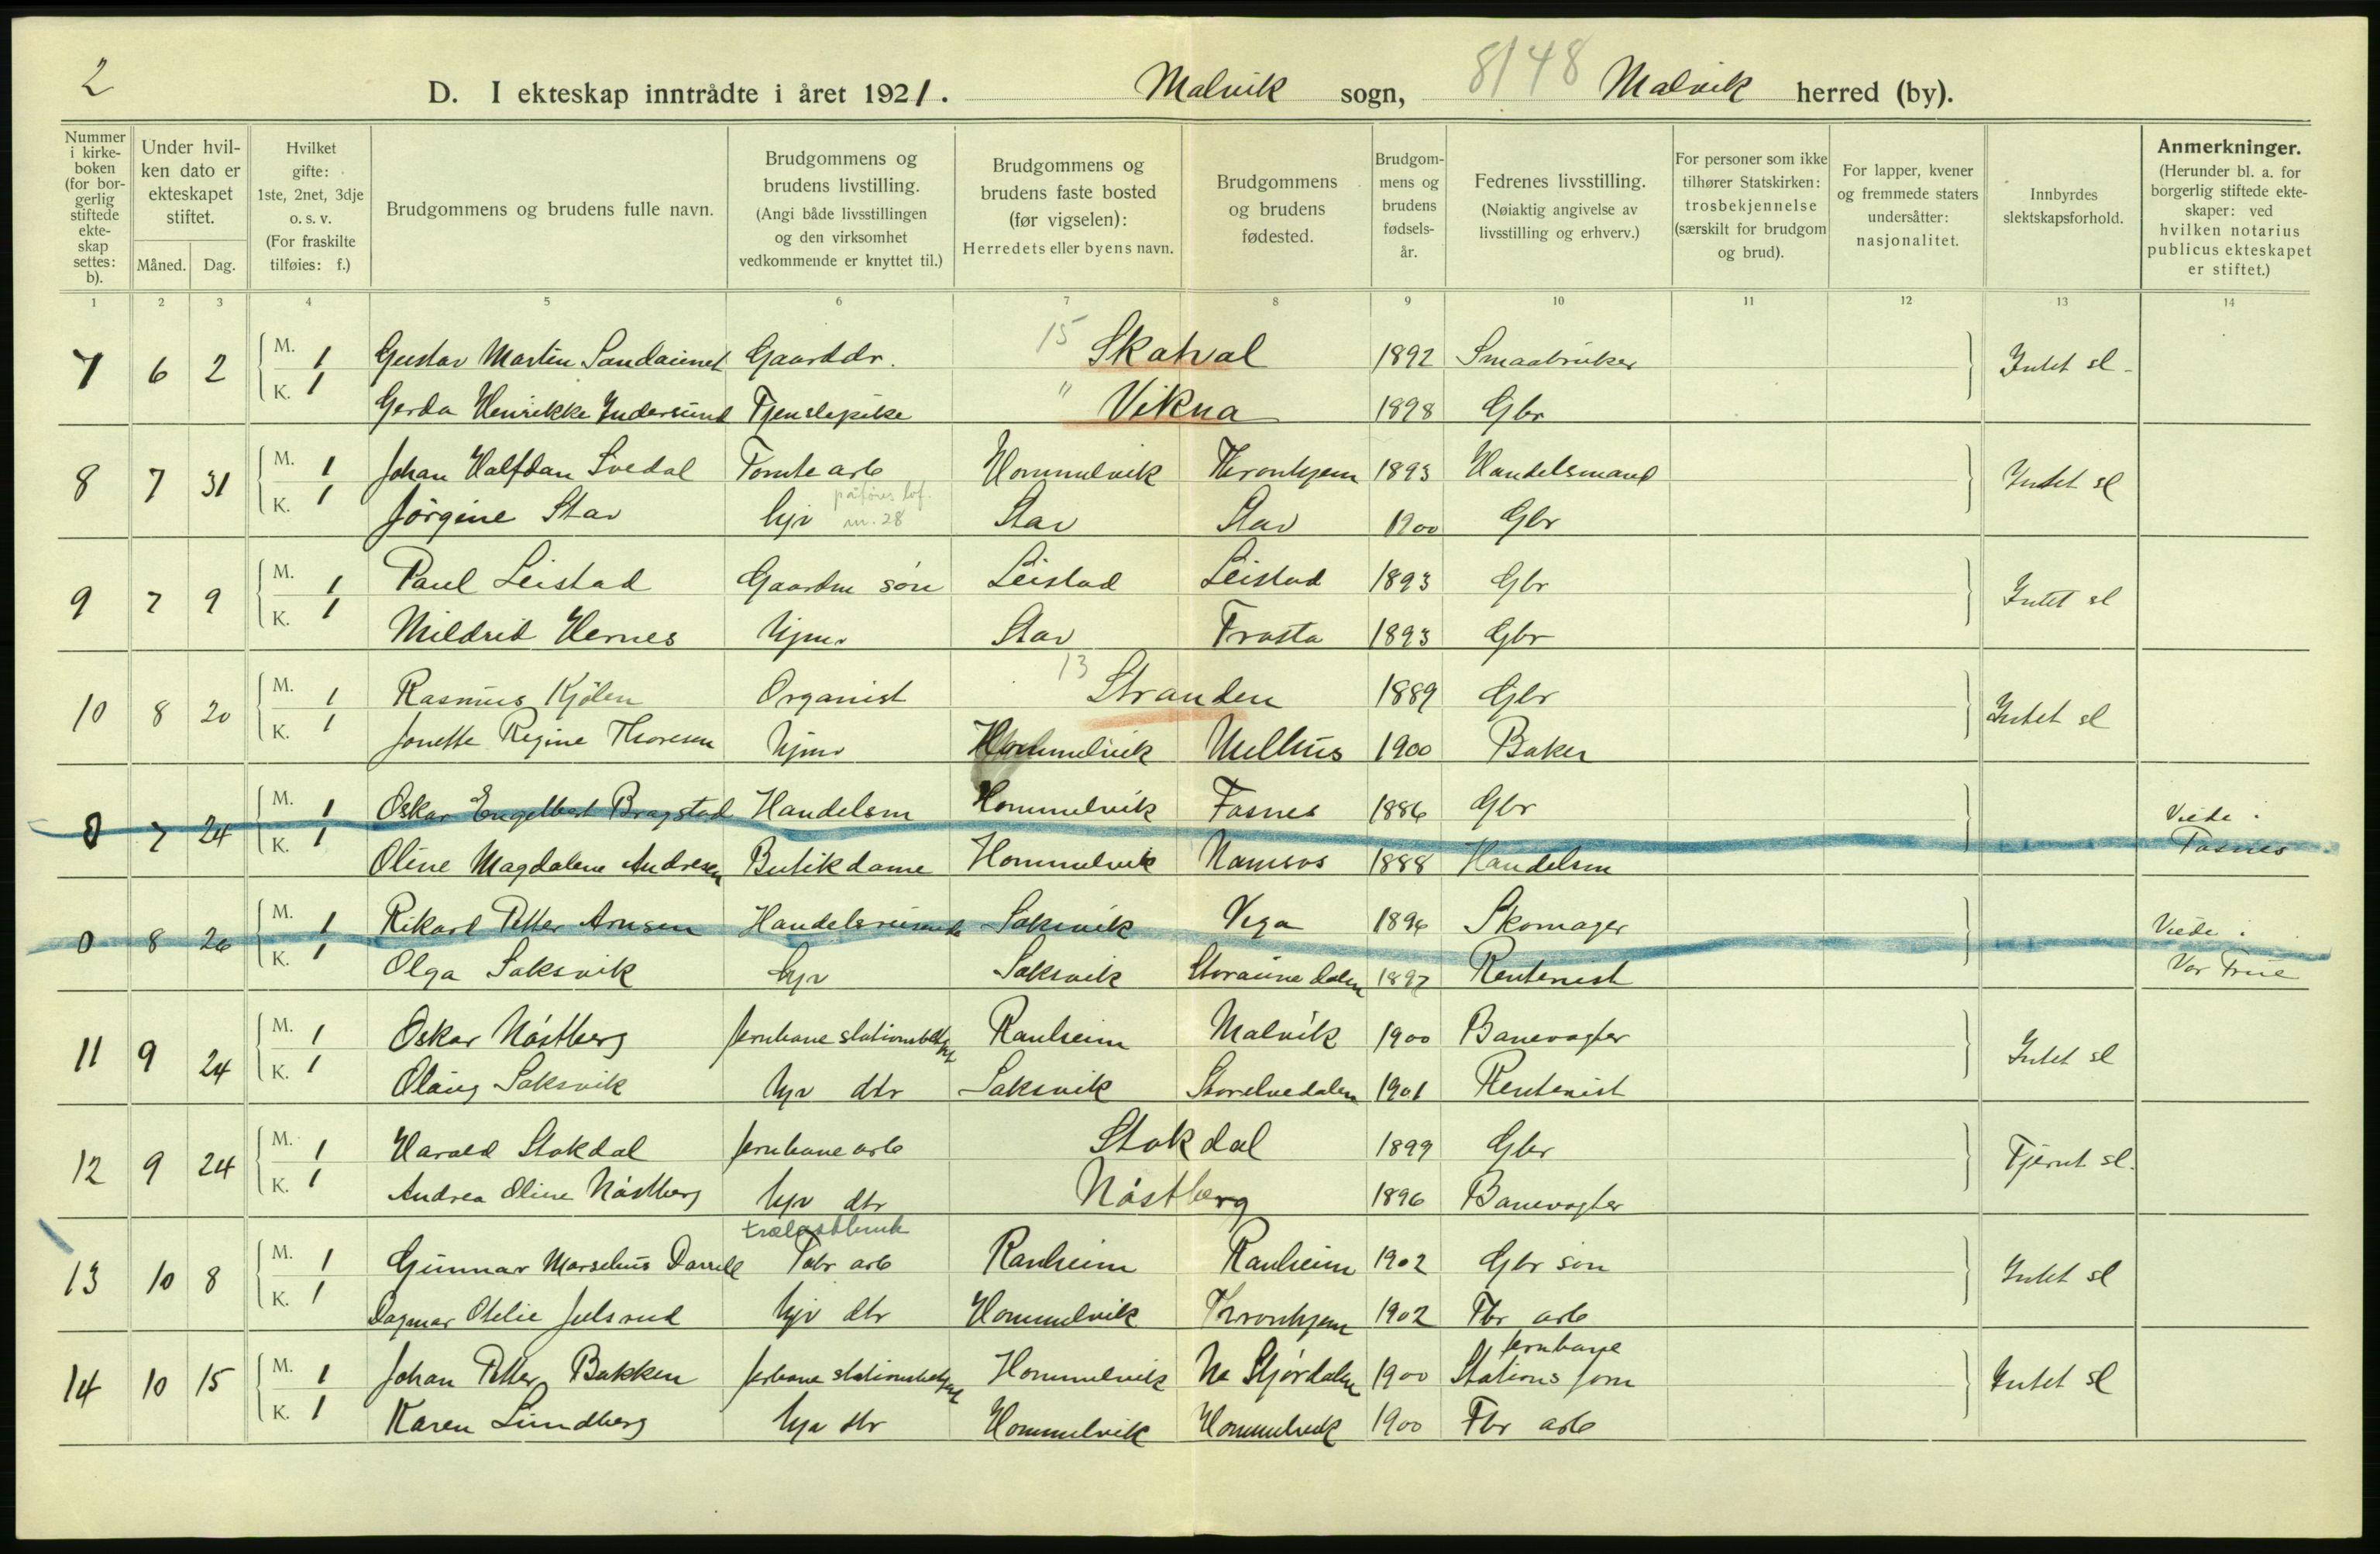 2
D. I ekteskap inntrådte i året 1921. Malvik sogn, 8/48 Malvik herred (by).
Nummer i kirkeboken (for borgerlig stiftede ekteskap settes: b).
Under hvilken dato er ekteskapet stiftet.
Måned. Dag.
Hvilket gifte: 1ste, 2net, 3dje o. s. v. (For fraskilte tilføies: f.)
Brudgommens og brudens fulle navn.
Brudgommens og brudens livstilling. (Angi både livsstillingen og den virksomhet vedkommende er knyttet til.)
Brudgommens og brudens faste bosted (før vigselen): Herredets eller byens navn.
Brudgommens og brudens fødested.
Brudgommens og brudens fødselsår.
Fedrenes livsstilling. (Nøiaktig angivelse av livsstilling og erhverv.)
For personer som ikke tilhører Statskirken: trosbekjennelse (særskilt for brudgom og brud).
For lapper, kvener og fremmede staters undersåtter: nasjonalitet.
Innbyrdes slektskapsforhold.
Anmerkninger. (Herunder bl. a. for borgerlig stiftede ekteskaper: ved hvilken notarius publicus ekteskapet er stiftet.)
1 2 3 4 5 6 7 8 9 10 11 12 13 14
7 6 2 M. 1 Gustav Martin Sandaunet Gaarddr. 15 Skatval 1892 Smaabruker Intet sl.
K. 1 Gerda Henrikke Indersund Tjenstepike " Vikna 1898 Gbr
8 7 31 M. 1 Johan Halfdan Svedal Tomte arb Hommelvik Thronhjem 1893 Handelsmand Intet sl
påføres lof. nr. 28
K. 1 Jörgine Stav hjv Stav Stav 1900 Gbr
9 7 9 M. 1 Paul Leistad Gaardm sön Leistad Leistad 1893 Gbr Intet sl
K. 1 Mildrid Hernes hjmv Stav Frosta 1893 Gbr
10 8 20 M. 1 Rasmus Kjölen Organist 13 Stranden 1889 Gbr Intet sl
K. 1 Jonette Regine Thoresen hjmv Hommelvik Melhus 1900 Baker
0 7 24 M. 1 Oskar Engelbert Bragstad Handelsm Hommelvik Fosnes 1886 Gbr Viede i
K. 1 Oline Magdalene Andresen Butikdame Hommelvik Namsos 1888 Handelsm Fosnes
0 8 26 M. 1 Rikard Petter Arnsen Handelsreisende Saksvik Vega 1896 Skomager Viede i
K. 1 Olga Saksvik hjv Saksvik 1897 Rentenist Vor Frue
11 9 24 M. 1 Oskar Nöstberg Jernbane stationsbetjent Ranheim Malvik 1900 Banevogter Intet sl
K. 1 Olaug Saksvik hjv dtr Saksvik Storelvedalen 1901 Rentenist
12 9 24 M. 1 Harald Stokdal Jernbane arb Stokdal 1899 Gbr Fjernt sl.
K. 1 Andrea Oline Nöstberg hjv dtr Nöstberg 1896 Banevogter
trælastbruk
13 10 8 M. 1 Gunnar Marselius Fabr arb Ranheim Ranheim 1902 Gbr sön Intet sl
K. 1 Dagmar Otelie Julsrud hjv dtr Hommelvik Thronhjem 1902 Fbr arb
jernbane
14 10 15 M. 1 Johan Petter Bakken Jerbane stationsbetjent Hommelvik Ne Stjördalen 1900 Stations form Intet sl
K. 1 Karen Lundberg hjv dtr Hommelvik Hommelvik 1900 Fbr arb